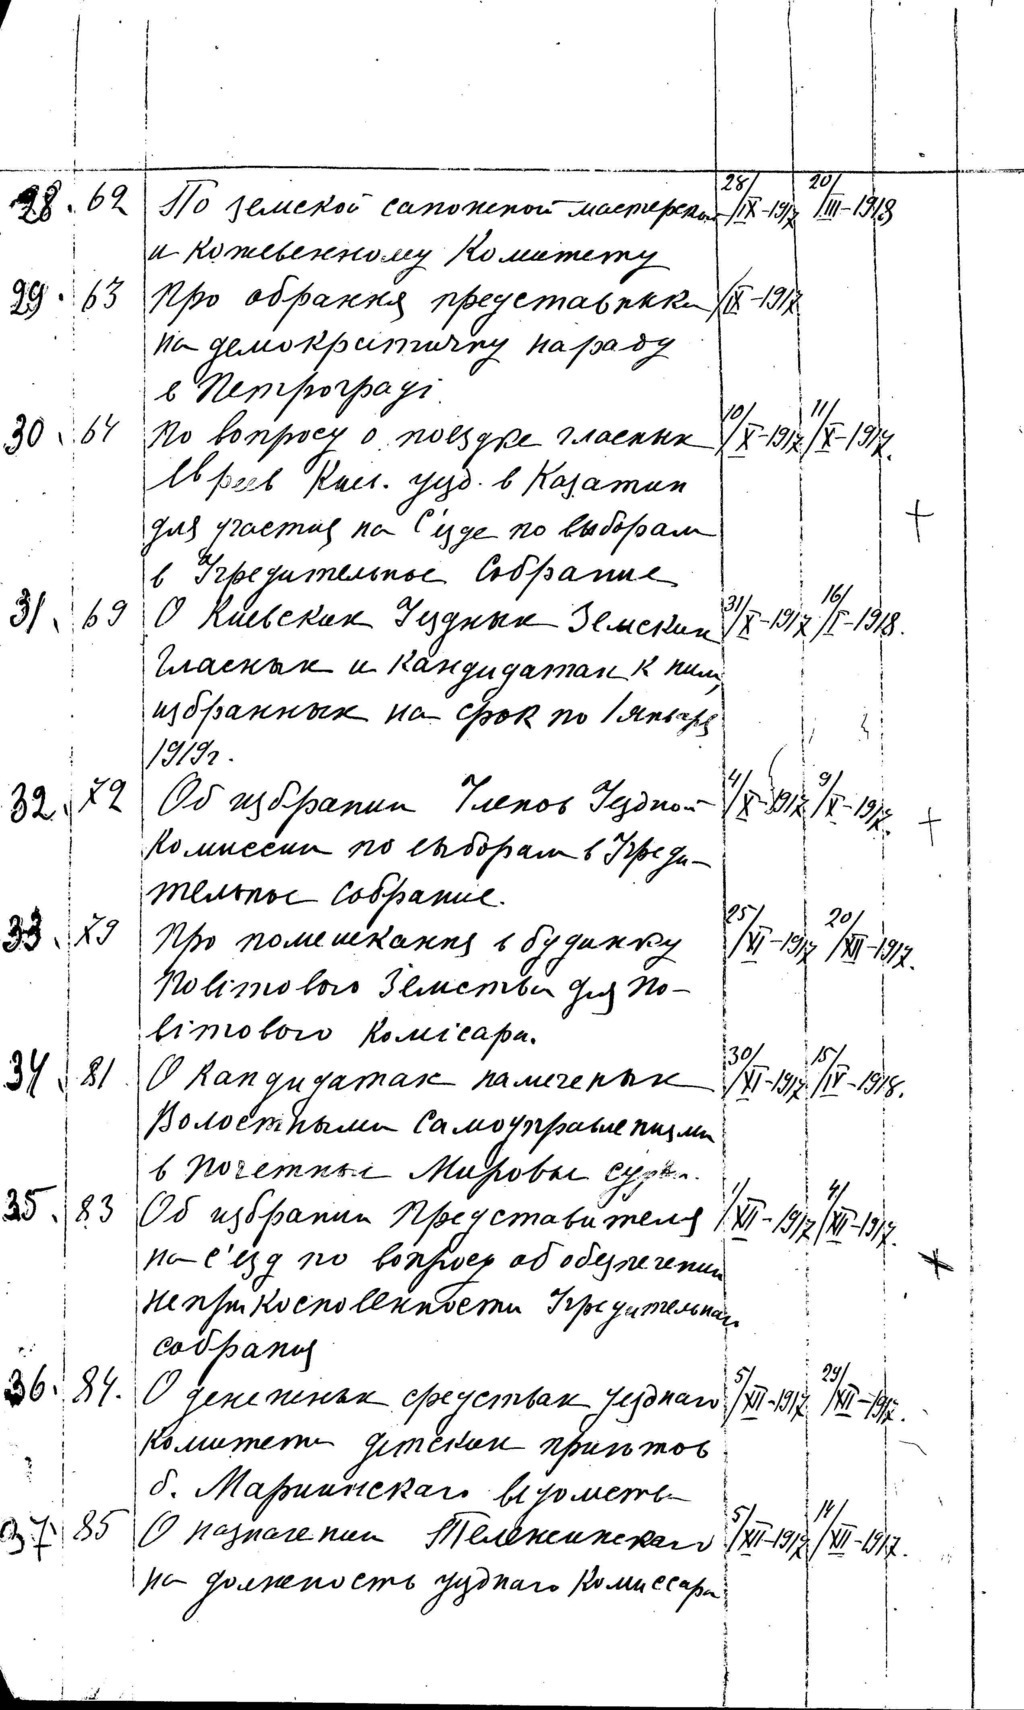 28. 62 По земской сапожной мастерской 28/IX-1917 20/III-1918
и кожевенному Комитету
29. 63 Про обрання представника /IX-1917
на демократичну нараду
в Петрограді
30. 64 По вопросу о поездке гласных 10/X-1917 11/X-1917.
Евреев Киев. уезд. в Казатин
для участия на С'езде по выборам
в Учредительное Собрание
31. 69 О Киевских Уездных Земских 31/X-1917 16/I-1918.
Гласных и кандидатах к ним,
избранных на срок по 1 января
1919г.
32. 72 Об избрании Членов Уездной 4/X-1917 9/X-1917.
Комиссии по выборам в Учреди-
тельное собрание.
33. 79 Про помешкання в будинку 25/XI-1917 20/XII-1917.
Повітового Земства для По-
вітового Комісара.
34. 81 О Кандидатах намеченых 30/XI-1917 15/IV-1918.
Волостными Самоуправлениями
в почетные Мировые судьи.
35. 83 Об избрании Представителя 1/XII-1917 4/XII-1917.
на с'езд по вопросу об обезпечении
неприкосновенности Учредительнаго
собрания
36. 84. О денежных средствах уезднаго 5/XII-1917 29/XII-1917.
комитета детских приютов
б. Мариинскаго ведомства
37. 85 О назначении Тележинскаго 5/XII-1917 14/XII-1917.
на должность уезднаго Комиссара